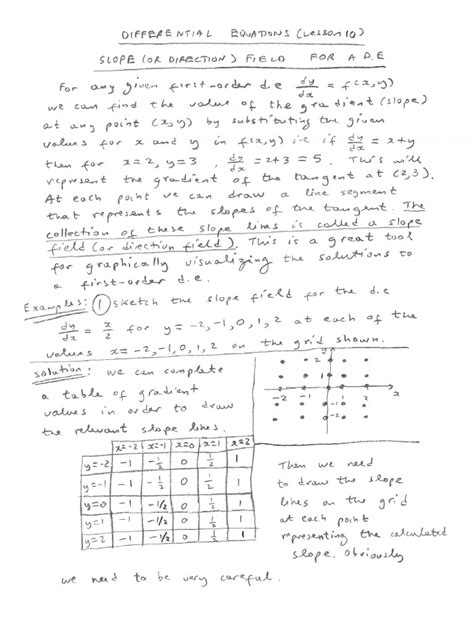 DIFFERENTIAL EQUATIONS (Lesson 10)
SLOPE (OR DIRECTION) FIELD FOR A D.E
For any given first-order d.e dy/dx = f(x,y)
we can find the value of the gradient (slope)
at any point (x,y) by substituting the given
values for x and y in f(x,y) i.e if dy/dx = x+y
then for x=2, y=3, dy/dx = 2+3 = 5. This will
represent the gradient of the tangent at (2,3).
At each point we can draw a line segment
that represents the slopes of the tangent. The
collection of these slope lines is called a slope
field (or direction field). This is a great tool
for graphically visualizing the solutions to
a first-order d.e.
Examples: ① Sketch the slope field for the d.e
dy/dx = x/2 for y = -2, -1, 0, 1, 2 at each of the
values x = -2, -1, 0, 1, 2 on the grid shown.
Solution: we can complete
a table of gradient
values in order to draw
the relevant slope lines.
y
2
1
-2 -1 1 2 x
-1
-2
x=-2 x=-1 x=0 x=1 x=2
y=-2 -1 -1/2 0 1/2 1
y=-1 -1 -1/2 0 1/2 1
y=0 -1 -1/2 0 1/2 1
y=1 -1 -1/2 0 1/2 1
y=2 -1 -1/2 0 1/2 1
Then we need
to draw the slope
lines on the grid
at each point
representing the calculated
slope. Obviously
we need to be very careful.